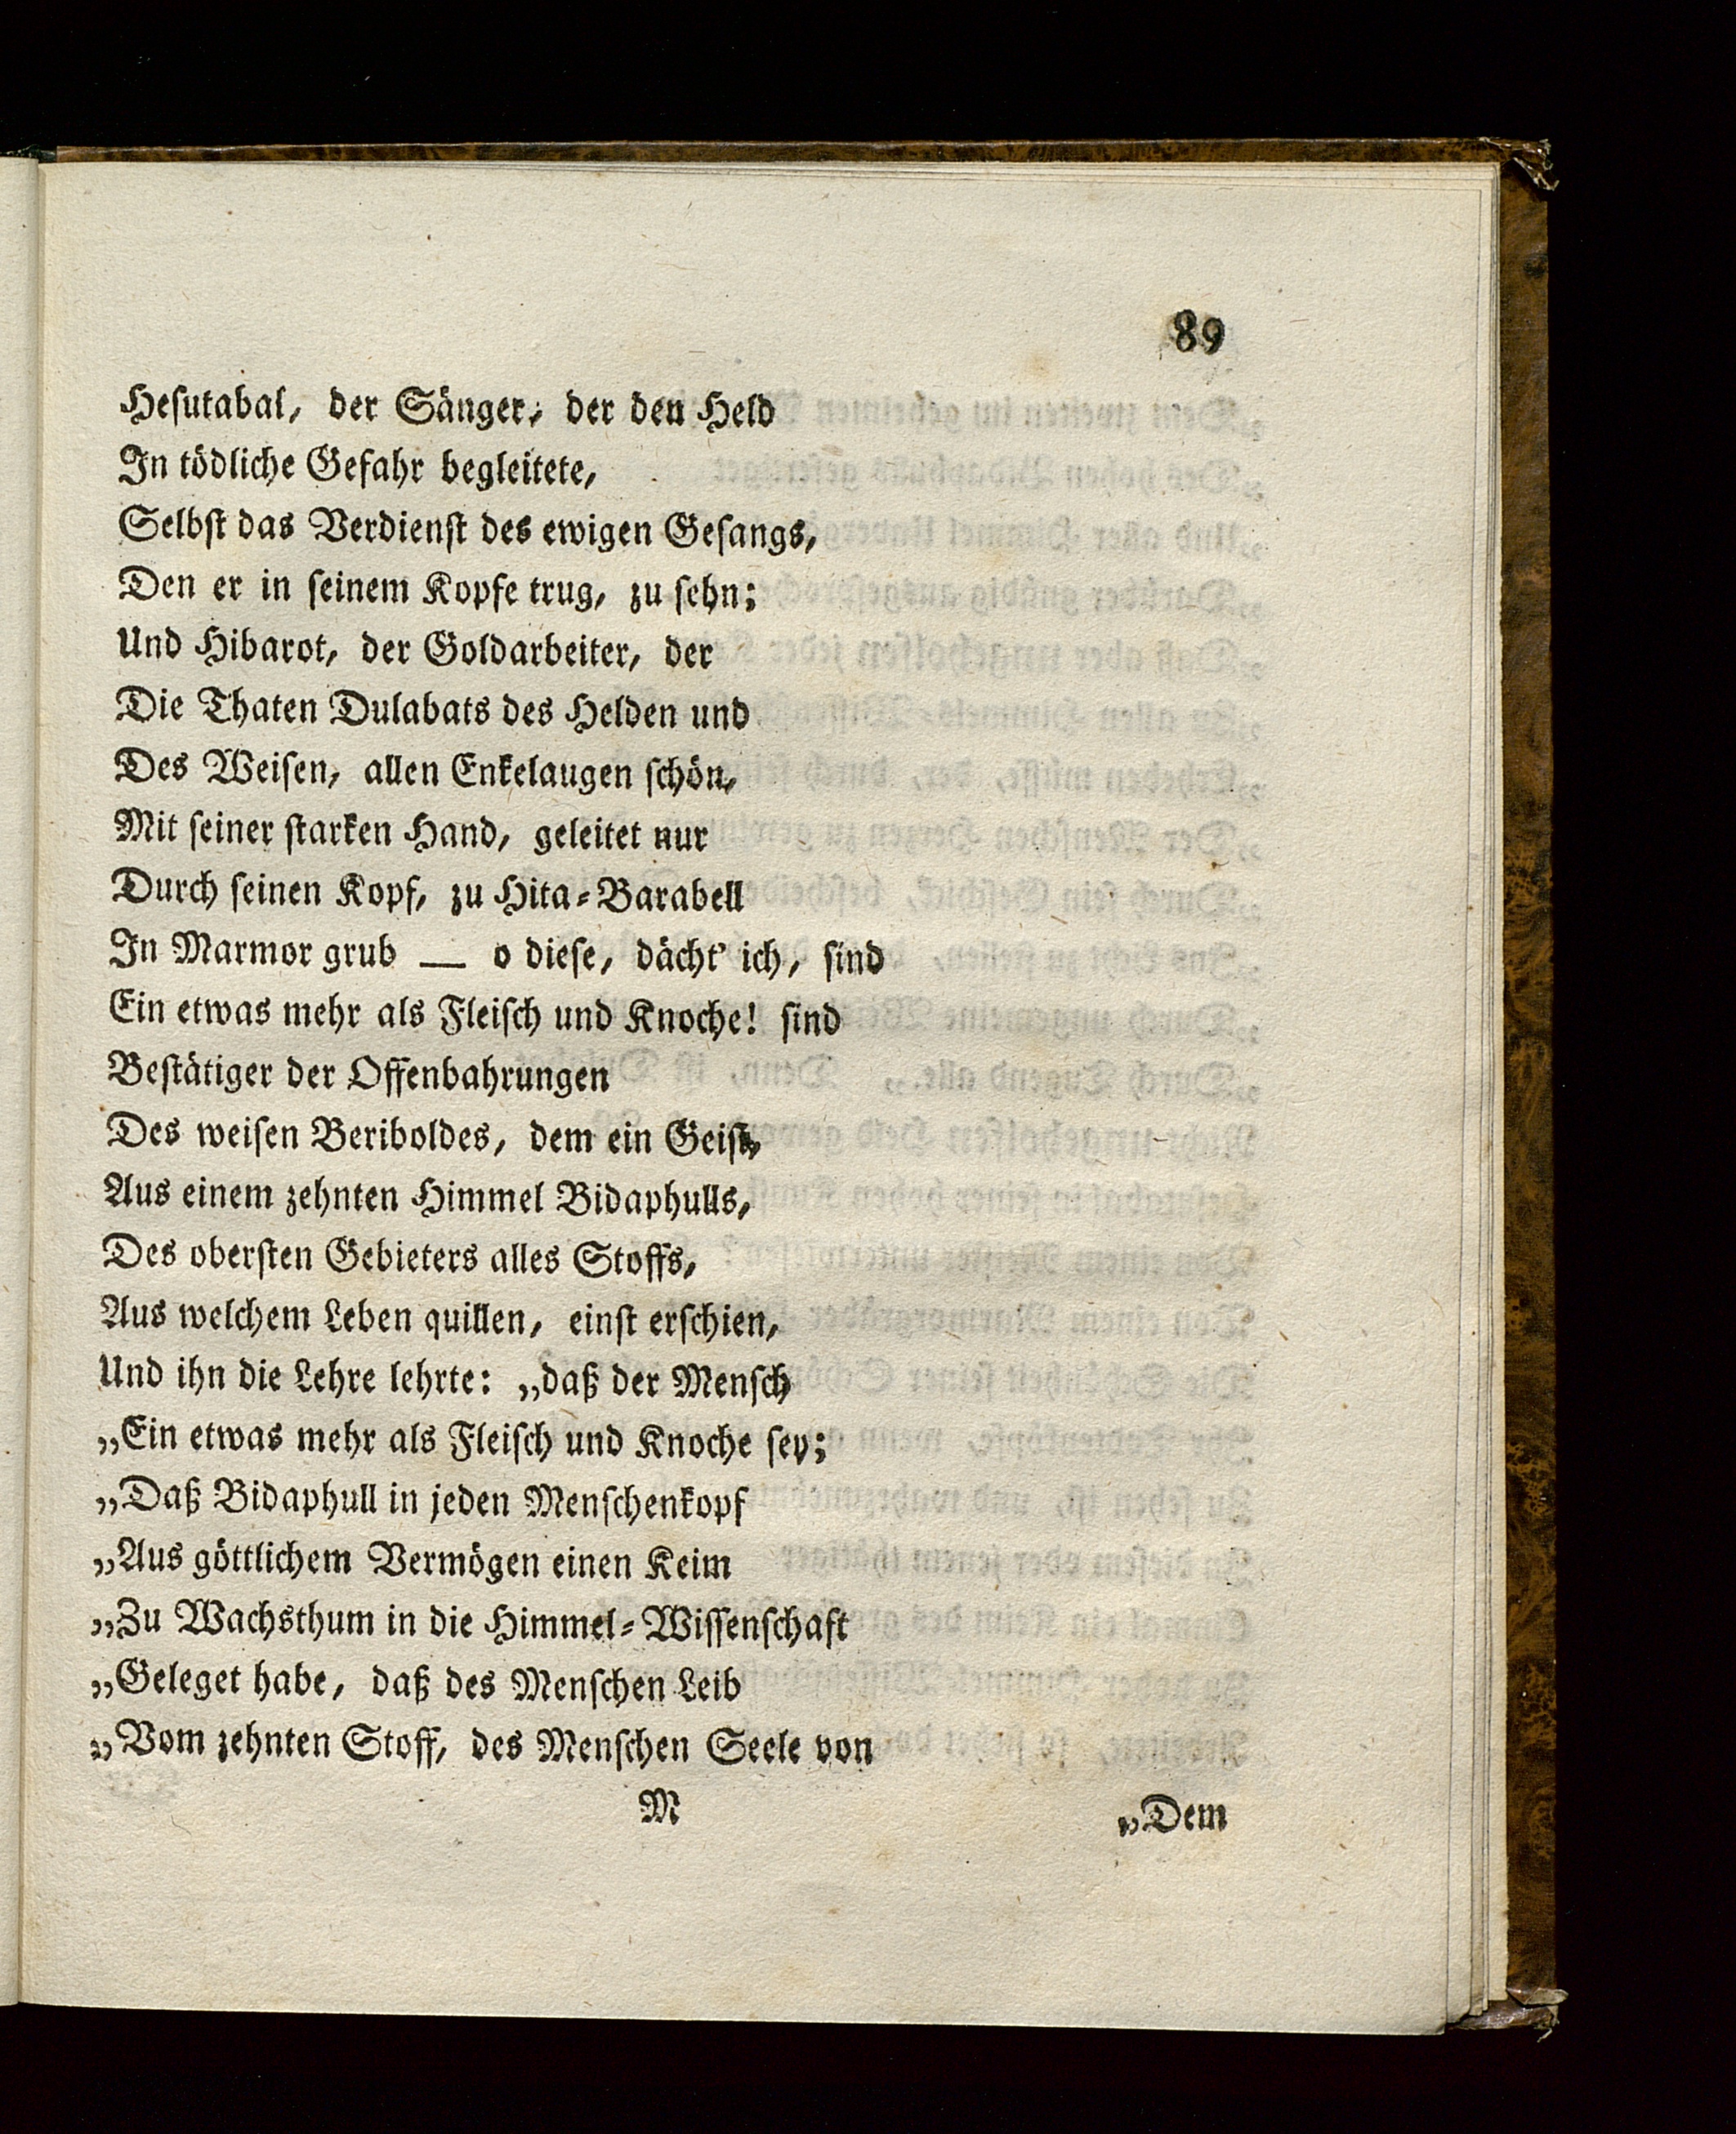 89
Hesutabal, der Sänger, der den Held
In tödliche Gefahr begleitete,
Selbst das Verdienst des ewigen Gesangs,
Den er in seinem Kopfe trug, zu sehn;
Und Hibarot, der Goldarbeiter, der
Die Thaten Dulabats des Helden und
Des Weisen, allen Enkelaugen schön,
Mit seiner starken Hand, geleitet nur
Durch seinen Kopf, zu Hita-Barabell
In Marmor grub — o diese, dächt' ich, sind
Ein etwas mehr als Fleisch und Knoche! sind
Bestätiger der Offenbahrungen
Des weisen Beriboldes, dem ein Geist,
Aus einem zehnten Himmel Bidaphulls,
Des obersten Gebieters alles Stoffs,
Aus welchem Leben quillen, einst erschien,
Und ihn die Lehre lehrte: „daß der Mensch
„Ein etwas mehr als Fleisch und Knoche sey;
„Daß Bidaphull in jeden Menschenkopf
„Aus göttlichem Vermögen einen Keim
„Zu Wachsthum in die Himmel-Wissenschaft
„Geleget habe, daß des Menschen Leib
„Vom zehnten Stoff, des Menschen Seele von
M „Dem